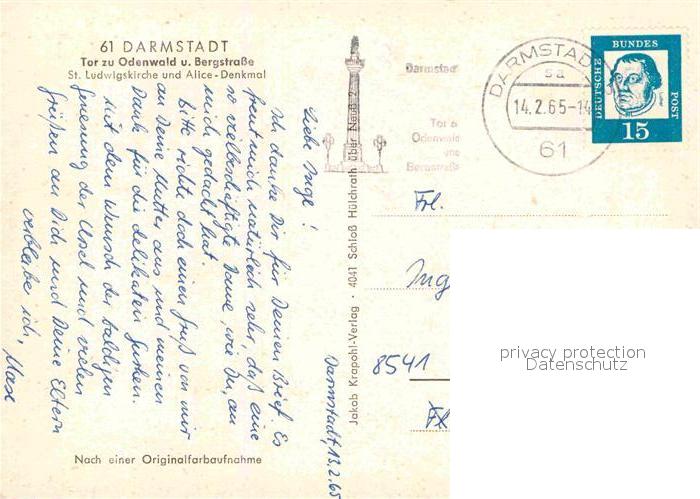 61 DARMSTADT
Tor zu Odenwald u. Bergstraße
St. Ludwigskirche und Alice-Denkmal
Darmstadt, 13.2.65
Liebe Inge!
Ich danke Dir für Deinen Brief. Es
freut mich natürlich sehr, daß eine
so vielbeschäftigte Dame, wie Du, an
mich gedacht hat.
Bitte richte doch einen Gruß von mir
an Deine Mutter aus und meinen
Dank für die delikaten Gurken.
Mit dem Wunsch der baldigen
Genesung der Ursel und vielen
Grüßen an Dich und Deine Eltern
verbleibe ich,
Nach einer Originalfarbaufnahme
Jakob Krapohl-Verlag · 4041 Schloß Hülchrath über Neuß 2
Darmstadt
Tor zu
Odenwald
und
Bergstraße
DARMSTADT
sa
14.2.65-14
61
DEUTSCHE
BUNDES
POST
15
Frl.
Ing
8541
privacy protection
Datenschutz